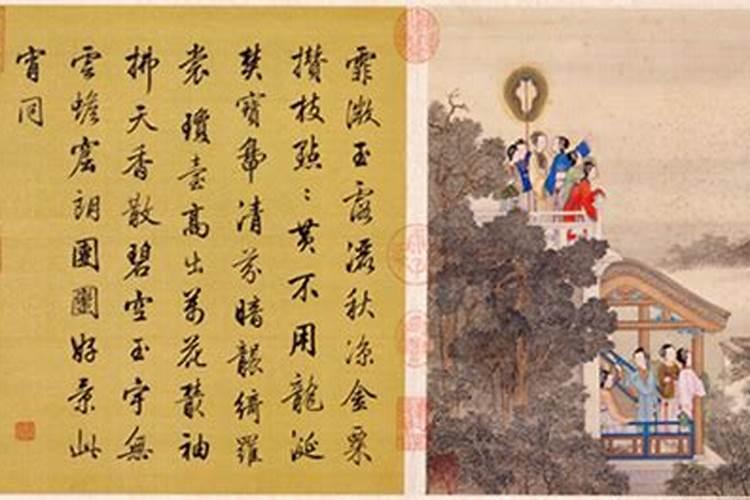 霏微玉露秋凉金粟
攢枝點〻黃不用龍涎
焚寶鼎清芬暗襲綺羅
裳瓊臺高出萬花叢袖
拂天香散碧空玉宇無
雲蟾窟朗團圞好景此
宵同